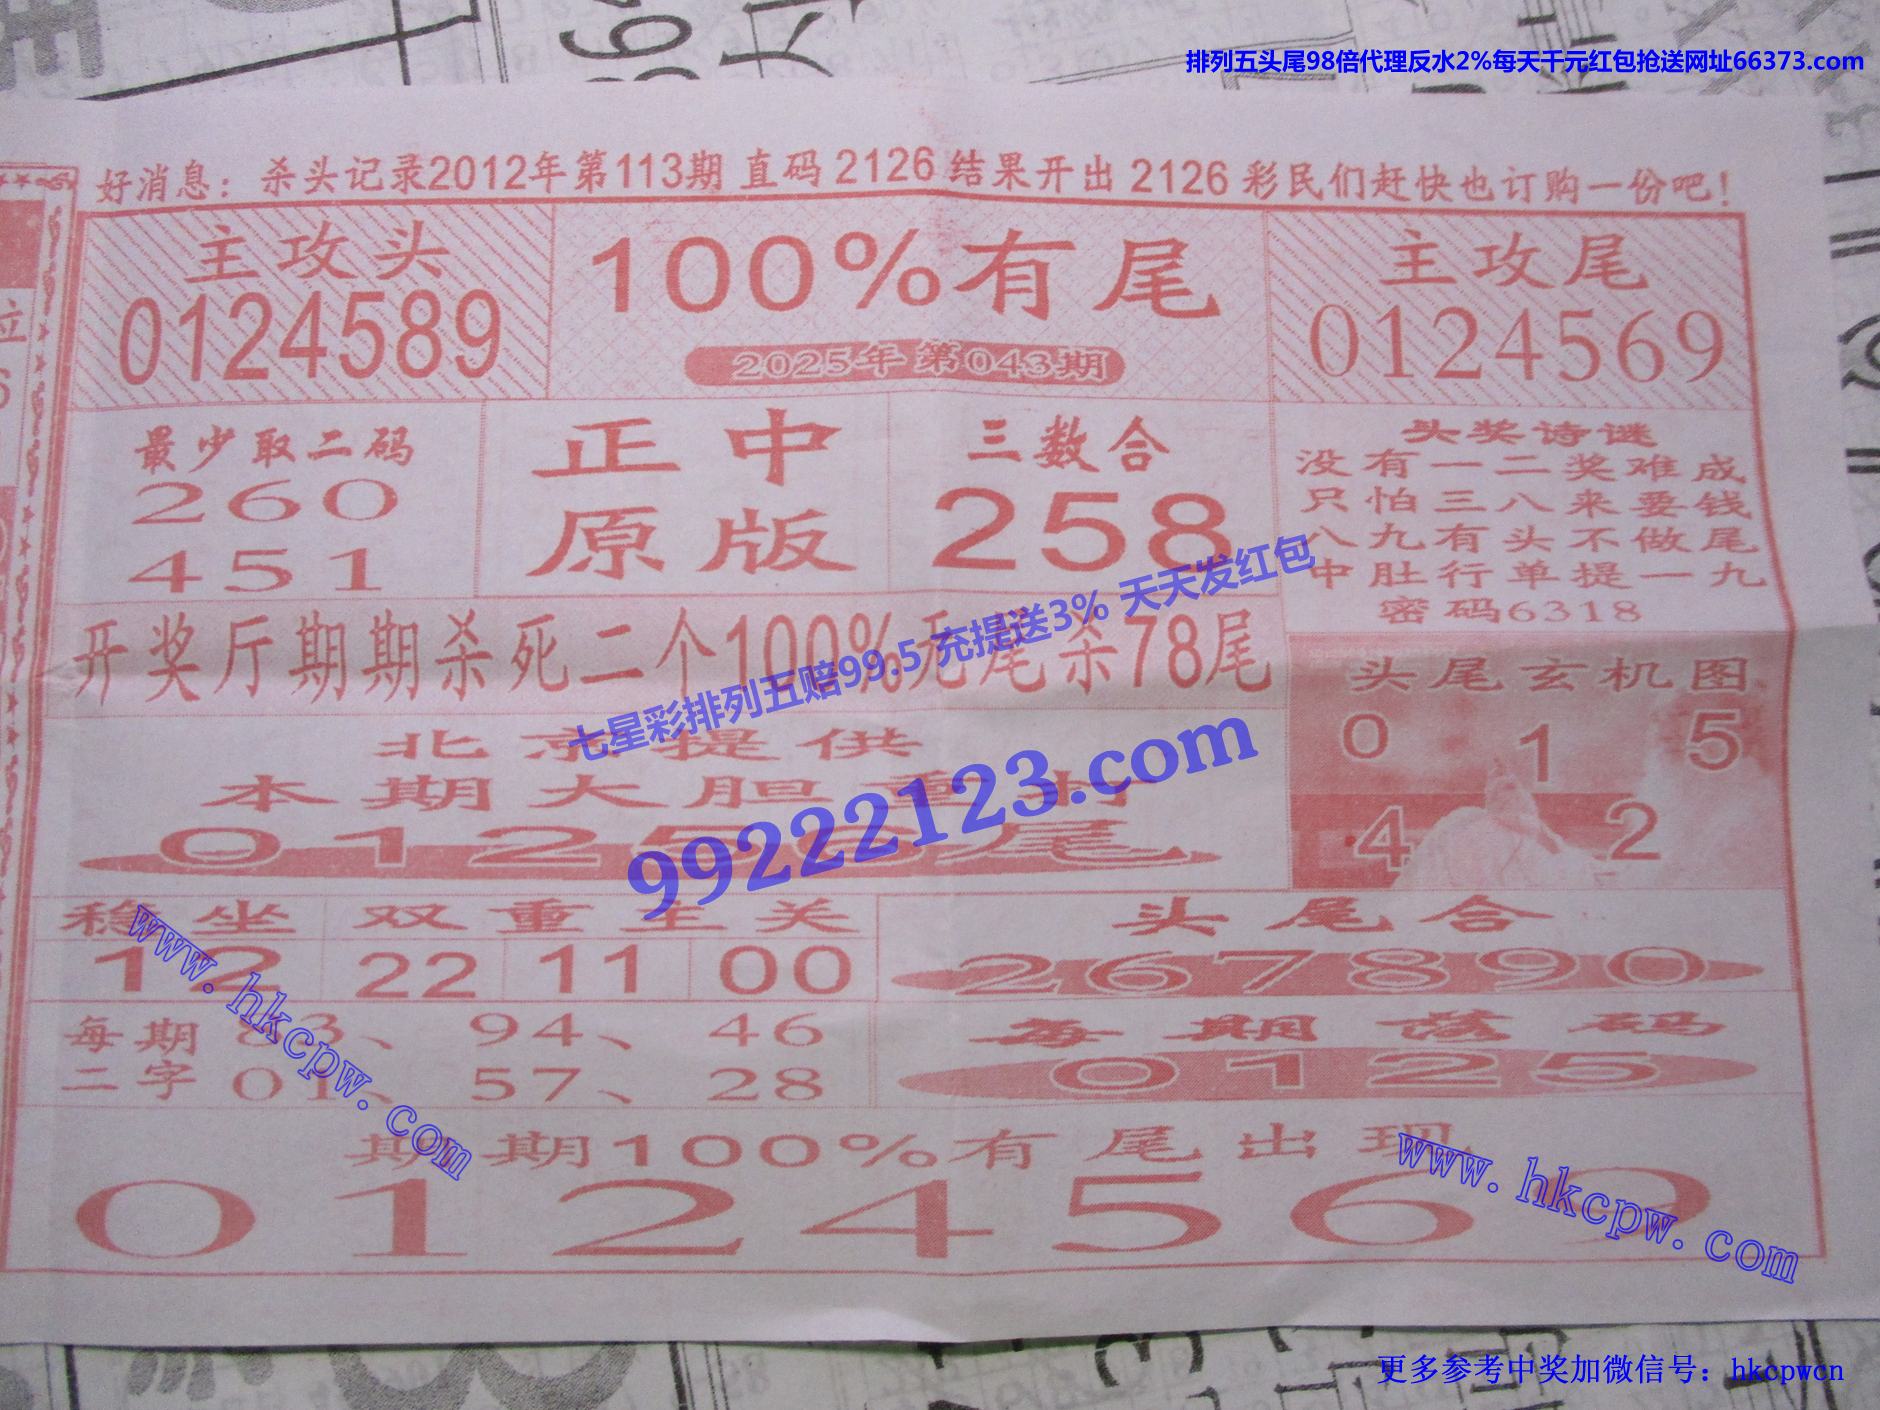 排列五头尾98倍代理反水2%每天千元红包抢送网址66373.com
好消息：杀头记录2012年第113期 直码 2126 结果开出 2126 彩民们赶快也订购一份吧！
主攻头
0124589
100%有尾
2025年第043期
主攻尾
0124569
最少取二码
260
451
正中
原版
三数合
258
头奖诗谜
没有一二奖难成
只怕三八来要钱
八九有头不做尾
中肚行单提一九
密码6318
开奖厅期期杀死二个100%无尾杀78尾
七星彩排列五赔99.5 充提送3% 天天发红包
99222123.com
头尾玄机图
0 1 5
4 2
北京提供
本期大胆重打
尾
稳坐 双重主关
12 22 11 00
头尾合
267890
每期 83、 94、 46
二字 01、 57、 28
每期落码
0125
期期100%有尾出现
0124569
www.hkcpw.com
www.hkcpw.com
更多参考中奖加微信号：hkcpwcn